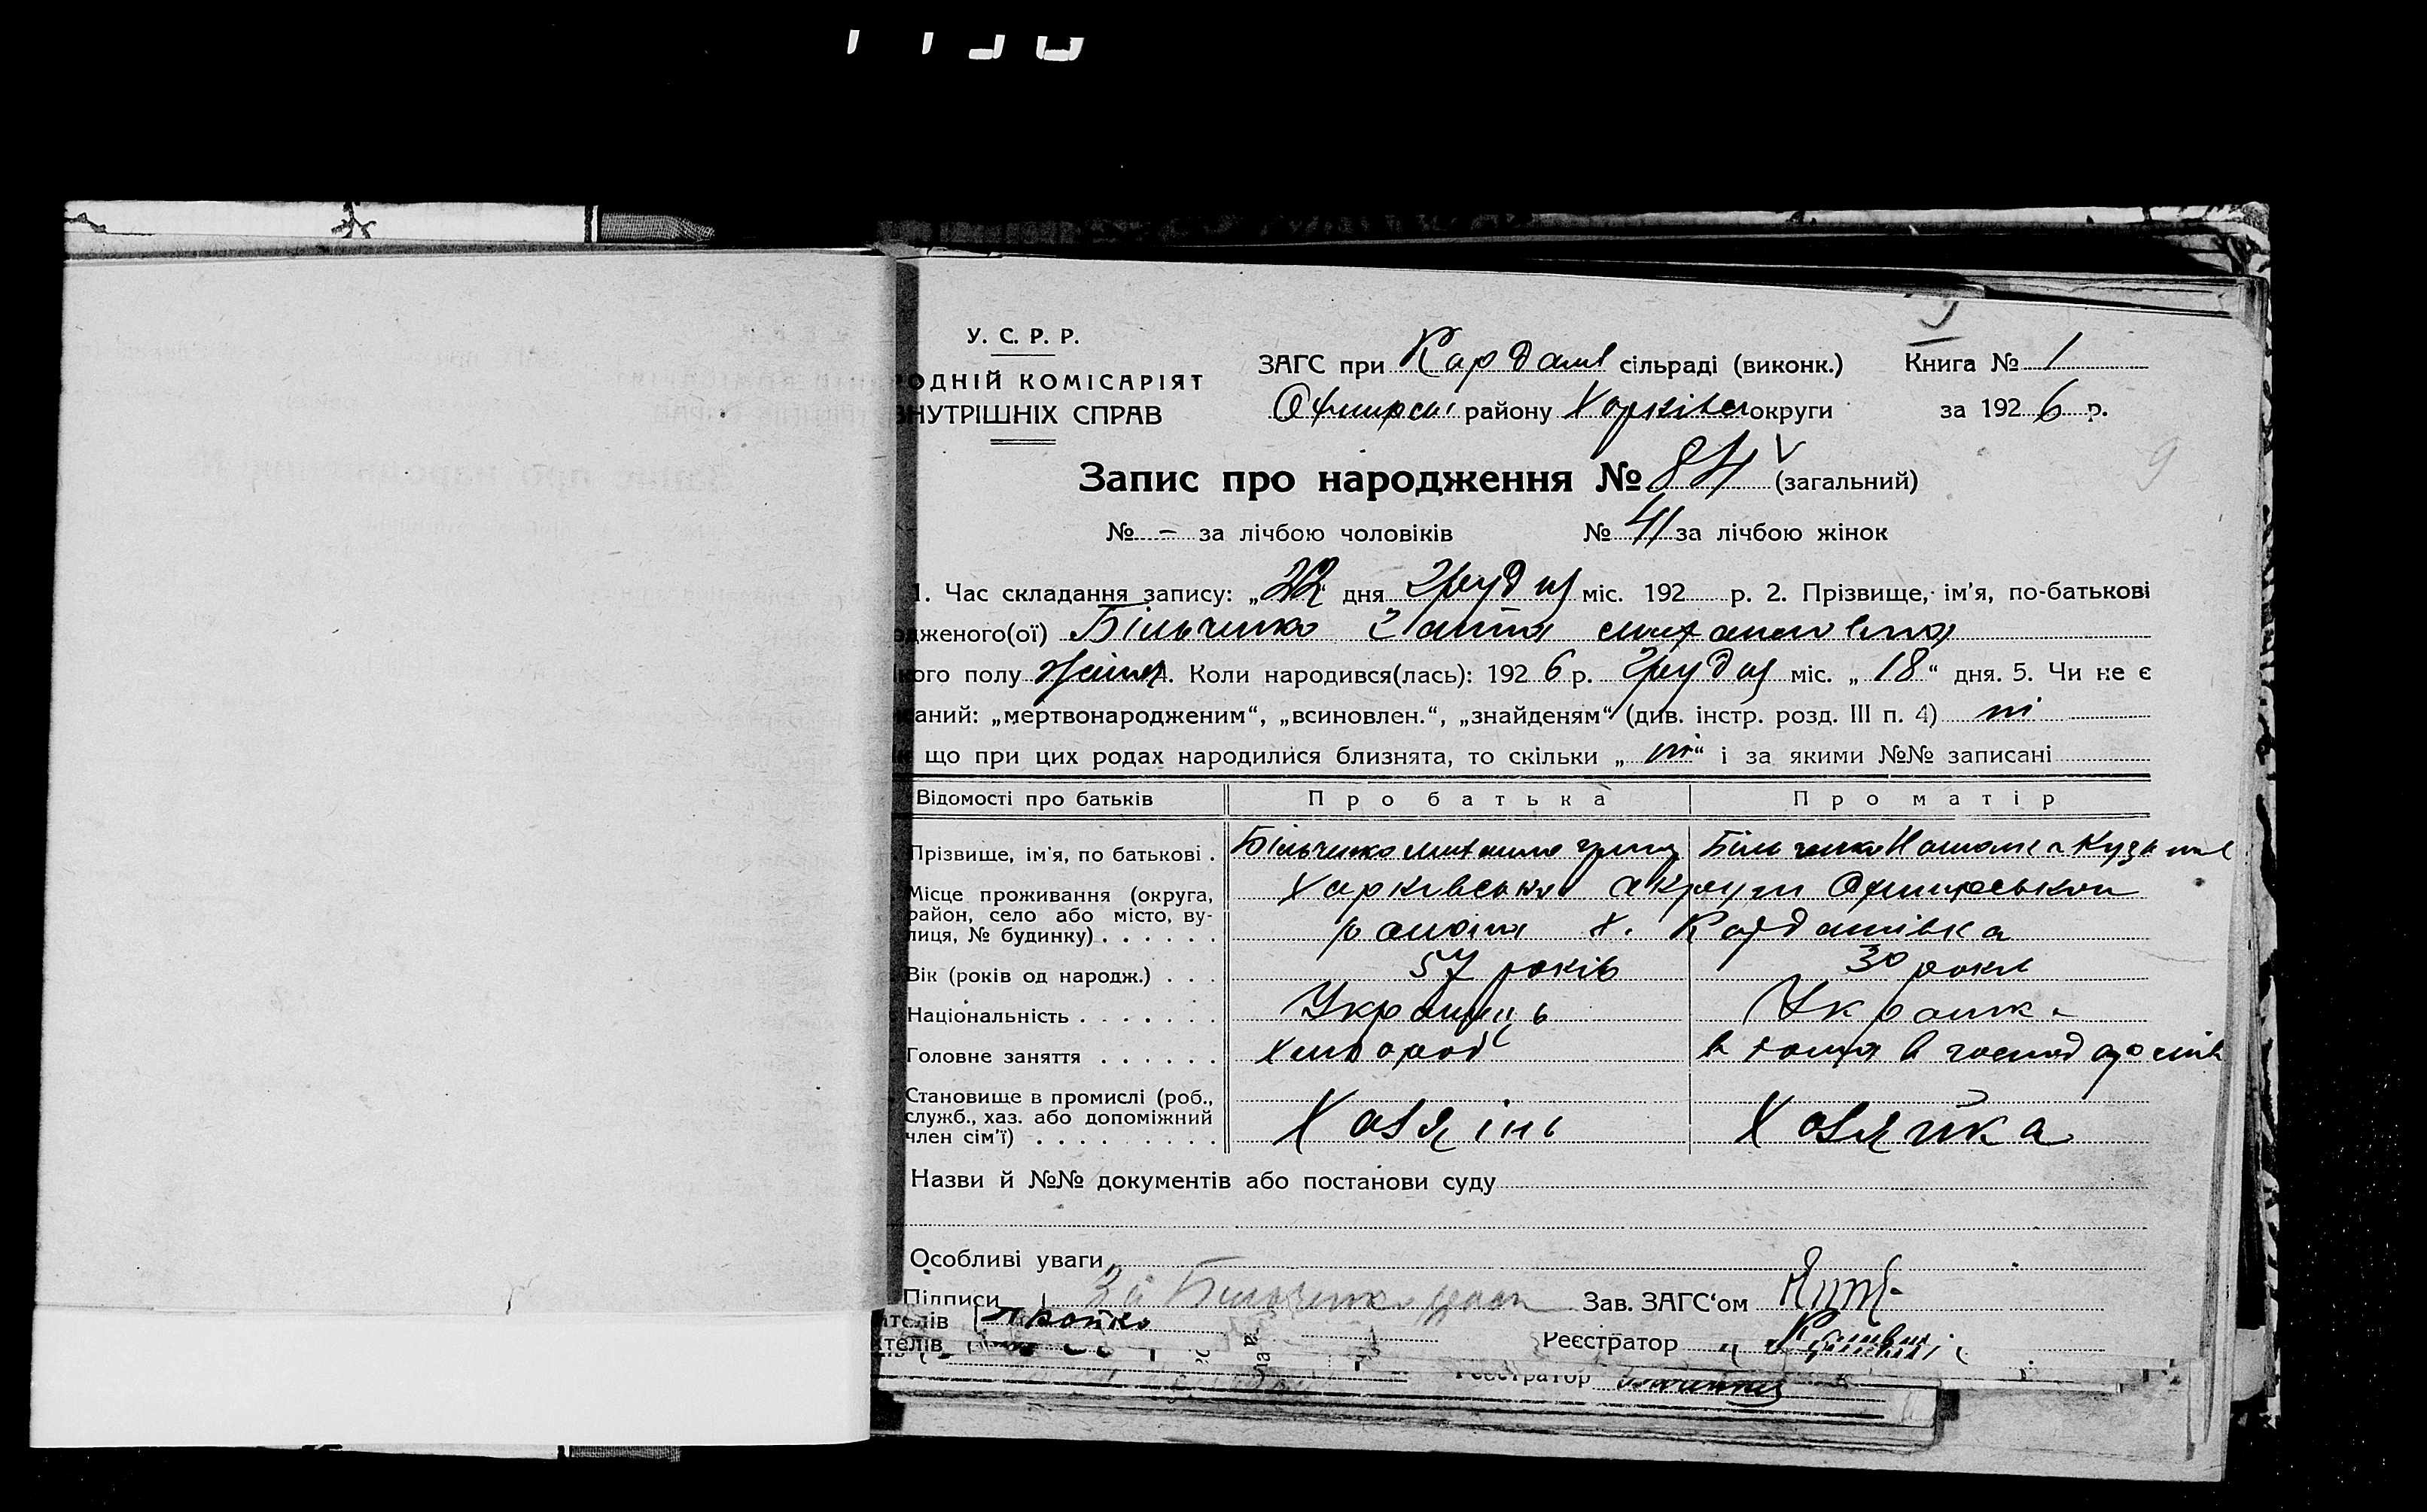 У. С. Р. Р.
ОДНІЙ КОМІСАРІЯТ
ВНУТРІШНІХ СПРАВ
ЗАГС при Кардаш сільраді (виконк.)
району Харківськ округи
Книга № 1
за 1926 р.
9
Запис про народження № 84 (загальний)
№ – за лічбою чоловіків № 41 за лічбою жінок
1. Час складання запису: „22“ дня Грудня міс. 192 р. 2. Прізвище, ім'я, по-батькові
дженого(ої) Більченко
кого полу жіноч 4. Коли народився(лась): 1926 р. Грудня міс. „18“ дня. 5. Чи не є
аний: „мертвонародженим“, „всиновлен.“, „знайденям“ (див. інстр. розд. III п. 4) ні
що при цих родах народилися близнята, то скільки „ні“ і за якими №№ записані
Відомості про батьків Про батька Про матір
Прізвище, ім'я, по батькові . Більченко Михаило Григ Більченко Кузьмів
Місце проживання (округа, район, село або місто, вулиця, № будинку) . . . . . . Харківської акруги
х. Кардашівка
Вік (років од народж.) . . . 57 років 30 роки
Національність . . . . . . . Українць Українка
Головне заняття . . . . . . Хлібороб
Становище в промислі (роб., служб., хаз. або допоміжний член сім'ї) . . . . . . . . . Хазяінь Хазяйка
Назви й №№ документів або постанови суду
Особливі уваги
Підписи Більченко
Зав. ЗАГС'ом
телів
Реєстратор
телів
Реєстратор